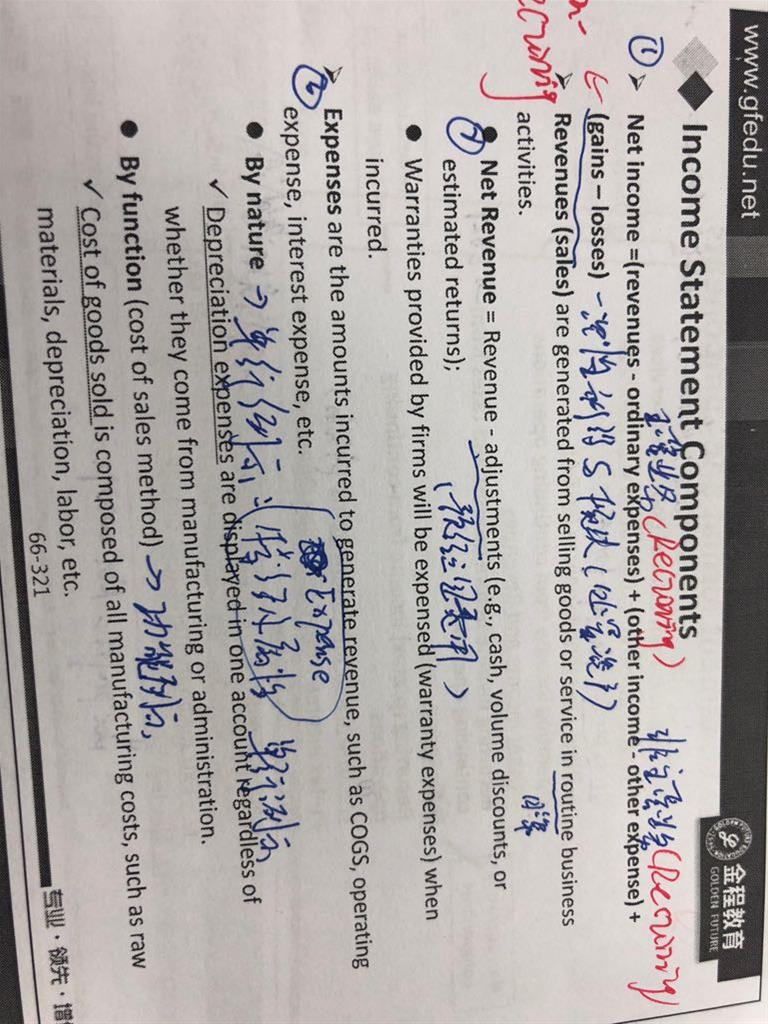 www.gfedu.net
金程教育
GOLDEN FUTURE
Income Statement Components
主营业务(Recurring)
非主营业务(Recurring)
① ➢ Net income =(revenues - ordinary expenses) + (other income - other expense) +
(gains – losses)
Recurring
➢ Revenues (sales) are generated from selling goods or service in routine business
activities.
日常
● Net Revenue = Revenue - adjustments (e.g., cash, volume discounts, or
estimated returns);
● Warranties provided by firms will be expensed (warranty expenses) when
incurred.
② ➢ Expenses are the amounts incurred to generate revenue, such as COGS, operating
expense, interest expense, etc.
Expense
● By nature →
✓ Depreciation expenses are displayed in one account regardless of
whether they come from manufacturing or administration.
● By function (cost of sales method) → 功能列示
✓ Cost of goods sold is composed of all manufacturing costs, such as raw
materials, depreciation, labor, etc.
66-321
专业·领先·增